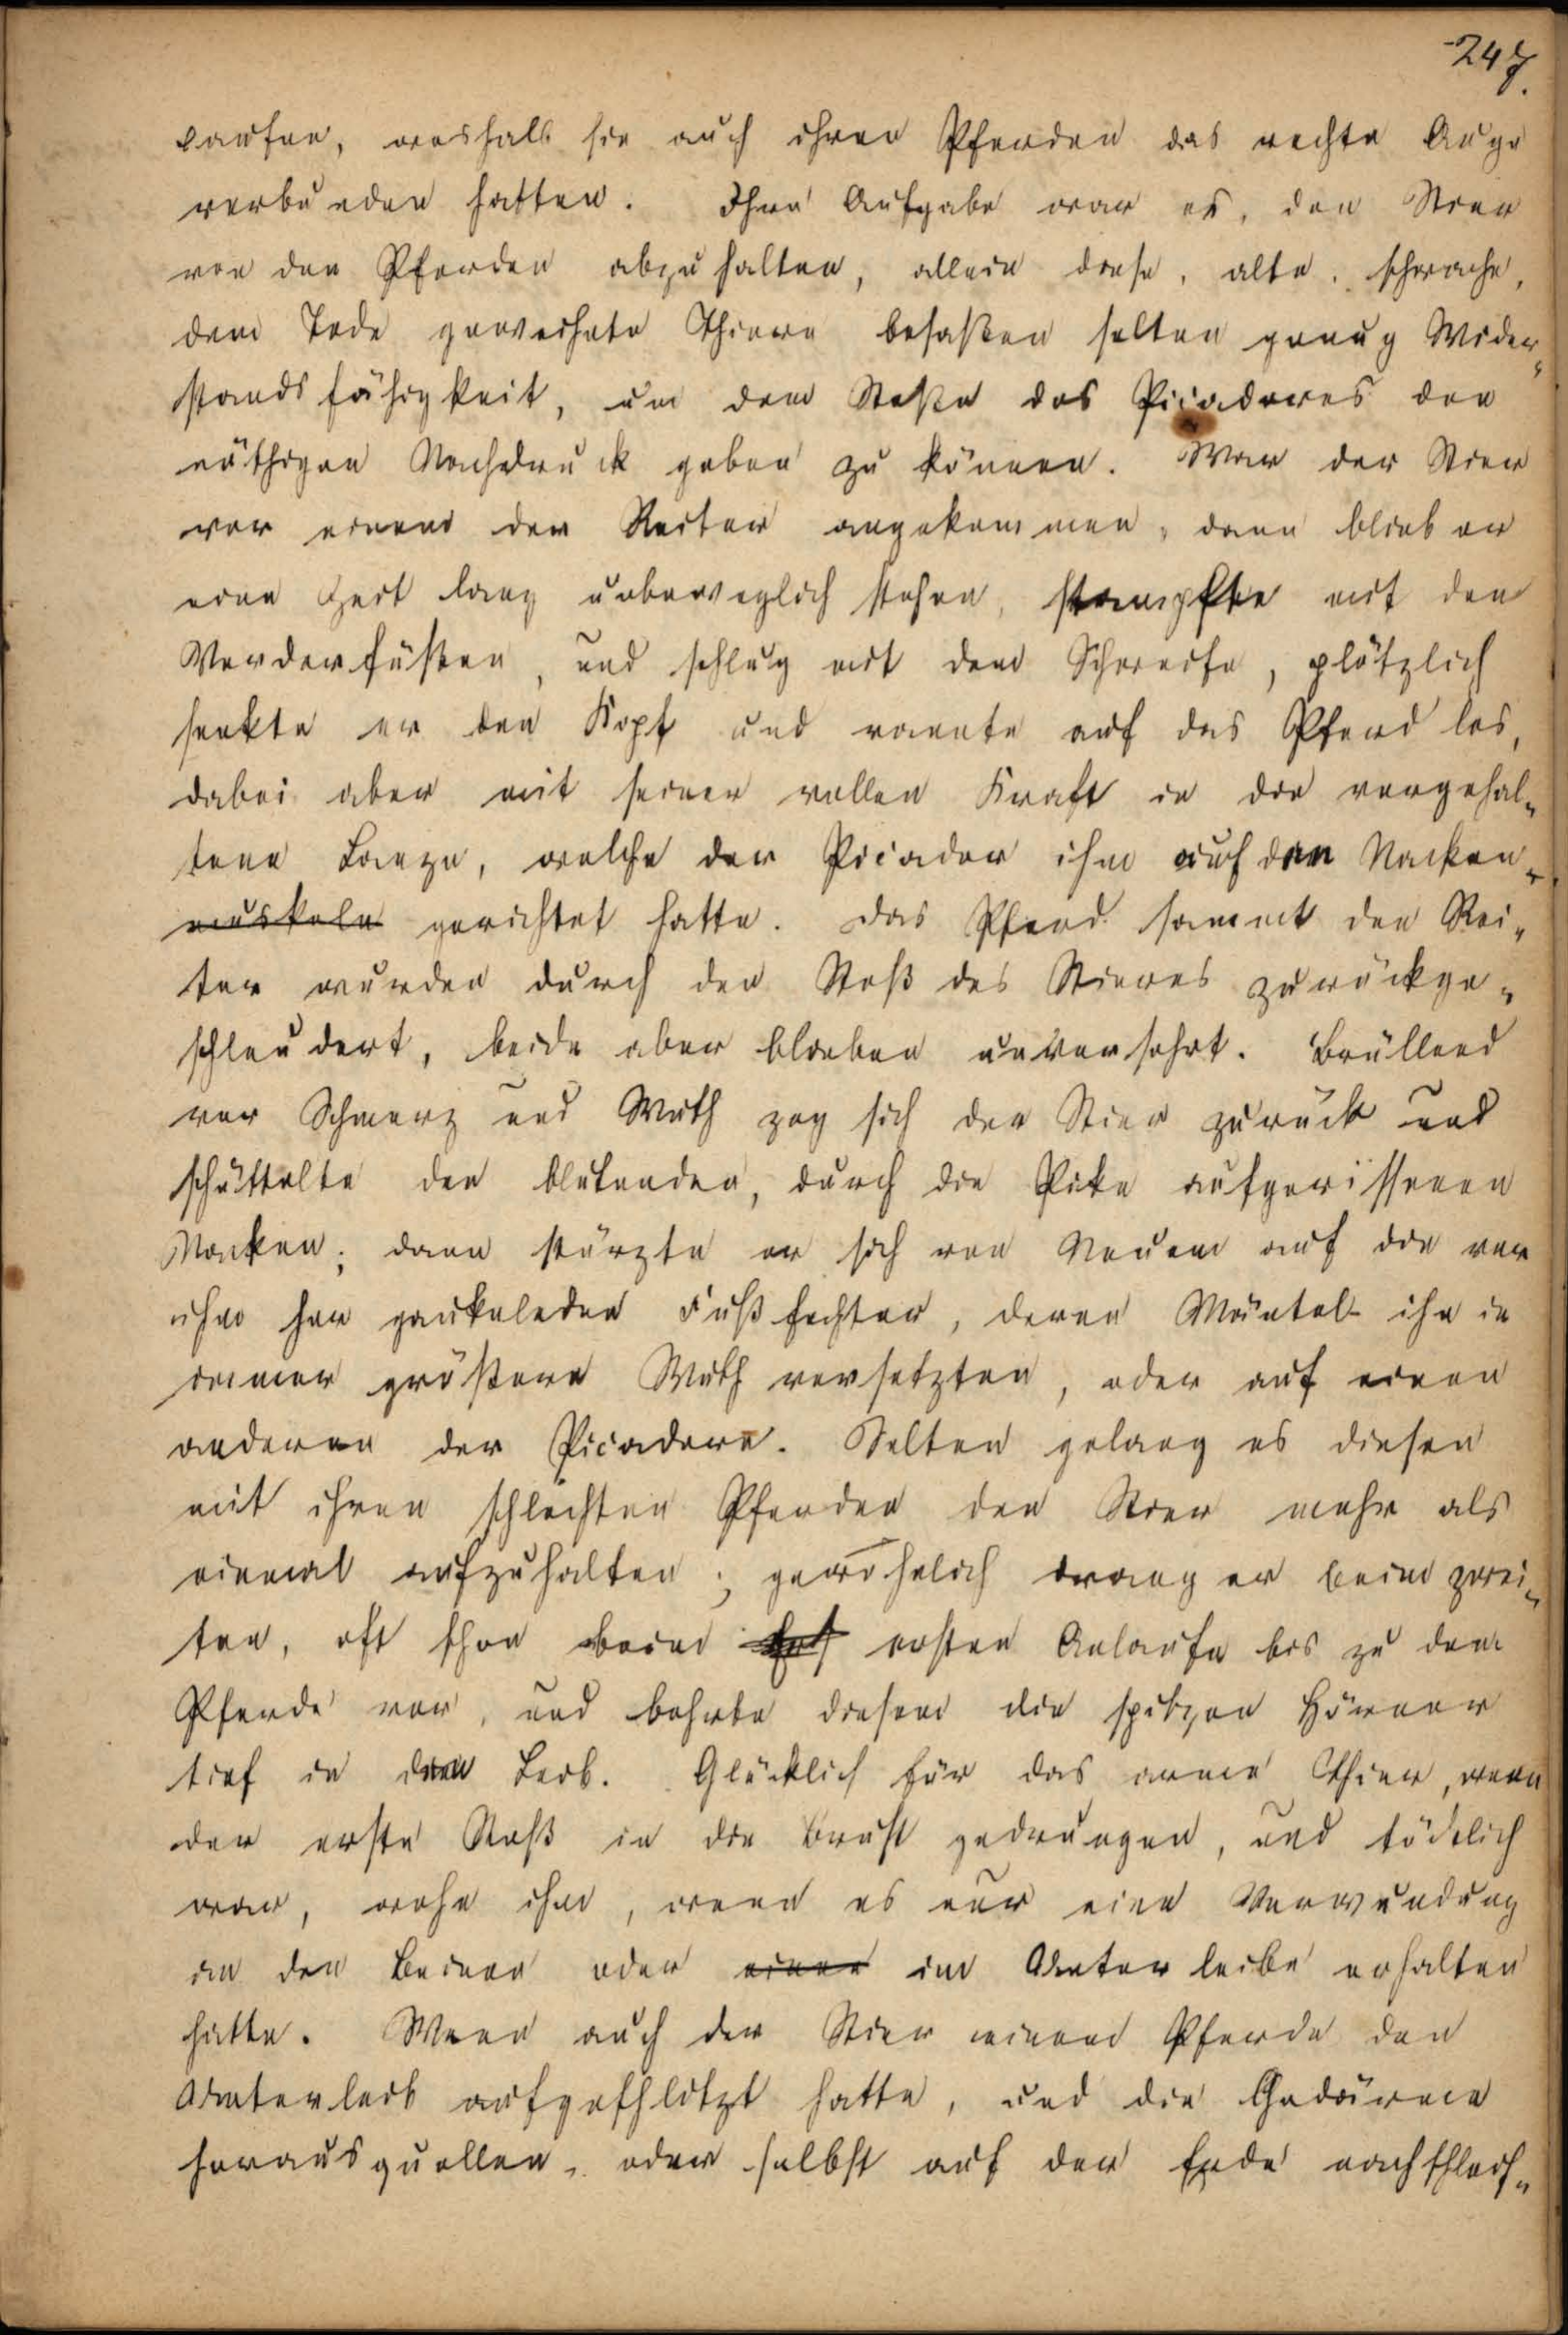 247.
laufen, weshalb sie auch ihren Pferden das rechte Auge
verbunden hatten. Ihre Aufgabe war es, den Stier
von den Pferden abzuhalten, allein diese, alte, schwache,
dem Tode geweihete Thiere besaßen selten genug Wider„
standsfähigkeit, um dem Stoße des Picadores den
nöthigen Nachdruck geben zu können. War der Stier
vor einem der Reiter angekommen, dann blieb er
eine Zeit lang unbeweglich stehen, stampfte mit den
Vorderfüßen, und schlug mit dem Schweife, plötzlich
senkte er den Kopf und rannte auf das Pferd los,
dabei aber mit seiner vollen Kraft in die vorgehal„
tene Lanze, welche der Picador ihm auf den Nacken„
muskeln gerichtet hatte. Das Pferd sammt den Rei„
ter wurden durch den Stoß des Stieres zurückge„
schleudert, beide aber blieben unversehrt. Brüllend
vor Schmerz und Wuth zog sich der Stier zurück und
schüttelte den blutenden, durch die Pike aufgerissenen
Nacken; dann stürzte er sich von Neuem auf die vor
ihm her gaukelnden Fußfechter, deren Mäntel ihn in
immer größere Wuth versetzten, oder auf einen
anderen der Picadore. Selten gelang es diesen
mit ihren schlechten Pferden den Stier mehr als
einmal aufzuhalten; gewöhnlich drang er beim zwei„
ten, oft schon beim ersten Anlaufe bis zu dem
Pferde vor, und bohrte diesem die spitzen Hörner
tief in den Leib. Glücklich für das arme Thier, wenn
der erste Stoß in die Brust gedrungen, und tödtlich
war, wehe ihm, wenn es nur eine Verwundung
an den Beinen oder einen im Unterleibe erhalten
hatte. Wenn auch der Stier einem Pferde den
Unterleib aufgeschlitzt hatte, und die Gedärme
herausquollen, oder selbst auf der Erde nachschleif„